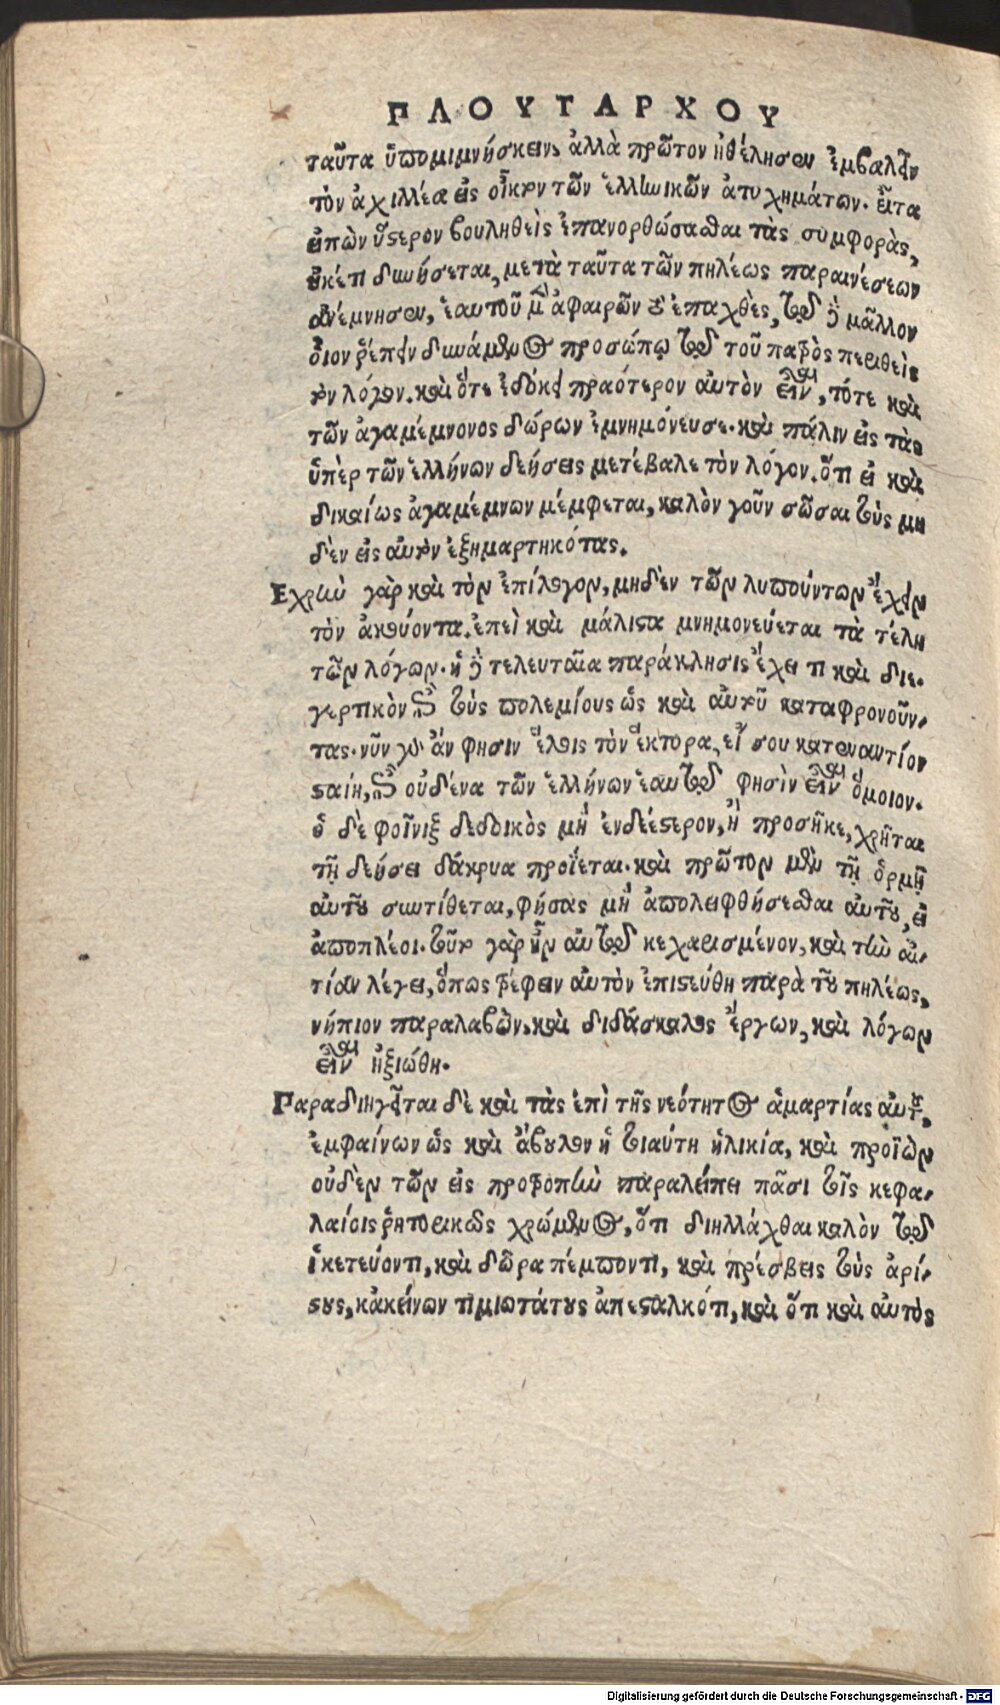 ΠΛΟΥΤΑΡΧΟΥ
ταῦτα ὑπομιμνήσκειν, ἀλλὰ πρῶτον ἠθέλησεν ἐμβαλεῖν
τὸν ἀχιλλέα εἰς οἶκτον τῶν ἑλληνικῶν ἀτυχημάτων. εἶτα
εἰπὼν ὕστερον βουληθεὶς ἐπανορθώσασθαι τὰς συμφορὰς,
οὐκέτι δυνήσεται, μετὰ ταῦτα τῶν πηλέως παραινέσεων
ἀνέμνησεν, ἑαυτοῦ μὲν ἀφαιρῶν τὸ ἐπαχθὲς, τῷ δὲ μᾶλλον
οἷον ῥέπειν δυναμένου προσώπῳ τῷ τοῦ πατρὸς περιθεὶς
τὸν λόγον. καὶ ὅτε ἐδόκει πραότερον αὐτὸν εἶναι, τότε καὶ
τῶν ἀγαμέμνονος δώρων ἐμνημόνευσε. καὶ πάλιν εἰς τὰς
ὑπὲρ τῶν ἑλλήνων δεήσεις μετέβαλε τὸν λόγον. ὅτι εἰ καὶ
δικαίως ἀγαμέμνων μέμφεται, καλὸν γοῦν σῶσαι τοὺς μη
δὲν εἰς αὐτὸν ἐξημαρτηκότας.
Εχρῆν γὰρ καὶ τὸν ἐπίλογον, μηδὲν τῶν λυπούντων ἔχειν
τὸν ἀκούοντα. ἐπεὶ καὶ μάλιστα μνημονεύεται τὰ τέλη
τῶν λόγων. ἡ δὲ τελευταῖα παράκλησις ἔχει τι καὶ διε-
γερτικὸν πρὸς τοὺς πολεμίους ὡς καὶ αὐτοῦ καταφρονοῦν-
τας. νῦν γὰρ ἄν φησιν ἕλοις τὸν ἕκτορα, εἴ σου κατεναντίον
σταίη, ἐπεὶ οὐδένα τῶν ἑλλήνων ἑαυτῷ φησὶν εἶναι ὅμοιον.
ὁ δὲ φοῖνιξ δεδοικὸς μὴ ἐνδεέστερον, ἢ προσῆκε, χρῆται
τῇ δεήσει δάκρυα προΐεται. καὶ πρῶτον μὲν τῇ ὁρμῇ
αὐτοῦ συντίθεται, φήσας μὴ ἀπολειφθήσεσθαι αὐτοῦ, εἰ
ἀποπλέοι. τοῦτο γὰρ ἦν αὐτῷ κεχαρισμένον, καὶ τὴν αἰ-
τίαν λέγει, ὅπως τρέφειν αὐτὸν ἐπιστεύθη παρὰ τοῦ πηλέως,
νήπιον παραλαβὼν, καὶ διδάσκαλος ἔργων, καὶ λόγων
εἶναι ἠξιώθη.
Παραδιηγεῖται δὲ καὶ τὰς ἐπὶ τῆς νεότητος ἁμαρτίας αὐτοῦ,
ἐμφαίνων ὡς καὶ ἄβουλον ἡ τοιαύτη ἡλικία, καὶ προϊὼν
οὐδὲν τῶν εἰς προτροπὴν παραλείπει πᾶσι τοῖς κεφα-
λαίοις ῥητορικῶς χρώμενος, ὅτι διηλλάχθαι καλὸν τῷ
ἱκετεύοντι, καὶ δῶρα πέμποντι, καὶ πρέσβεις τοὺς ἀρί-
στους, κἀκείνων τιμιωτάτους ἀπεσταλκότι, καὶ ὅτι καὶ αὐτὸς
Digitalisierung gefördert durch die Deutsche Forschungsgemeinschaft - DFG